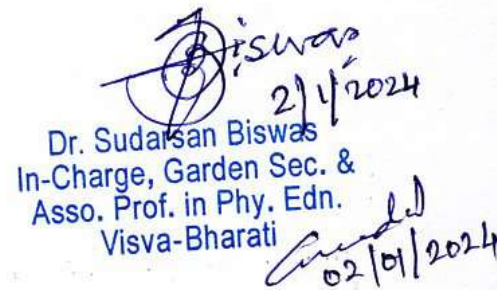 Biswas
2/1/2024
Dr. Sudarsan Biswas
In-Charge, Garden Sec. &
Asso. Prof. in Phy. Edn.
Visva-Bharati
02/01/2024